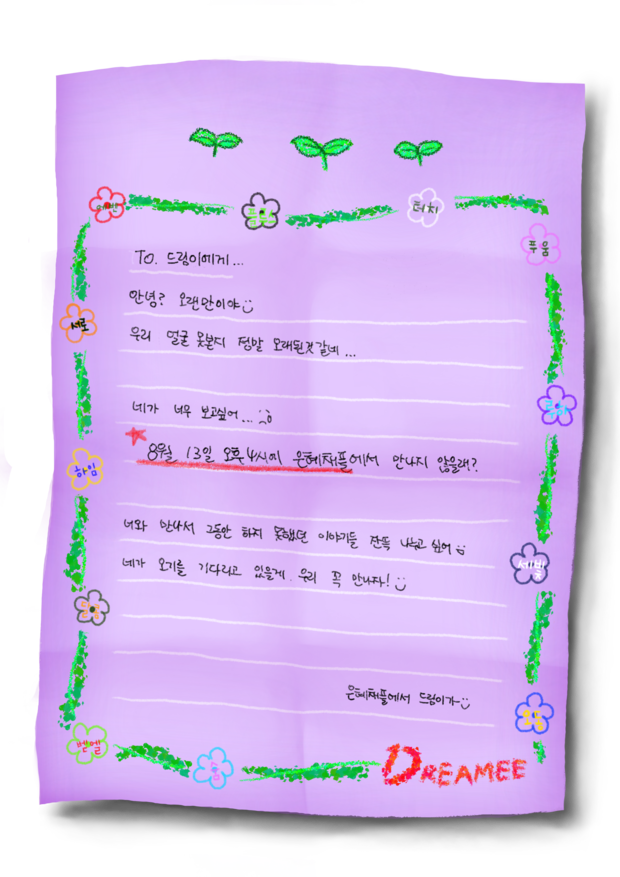 터치
루임
TO. 드림이에게...
안녕? 오랜만이야
서로
우리 얼굴 못본지 정말 오래된것 같네...
네가 너무 보고싶어...
8월 13일 오후 4시에 은혜채플에서 만나지 않을래?
하임
너와 만나서 그동안 하지 못했던 이야기들 잔뜩 나누고 싶어
세빛
네가 오기를 기다리고 있을게. 우리 꼭 만나자!
은혜채플에서 드림이가
벧엘
DREAMEE